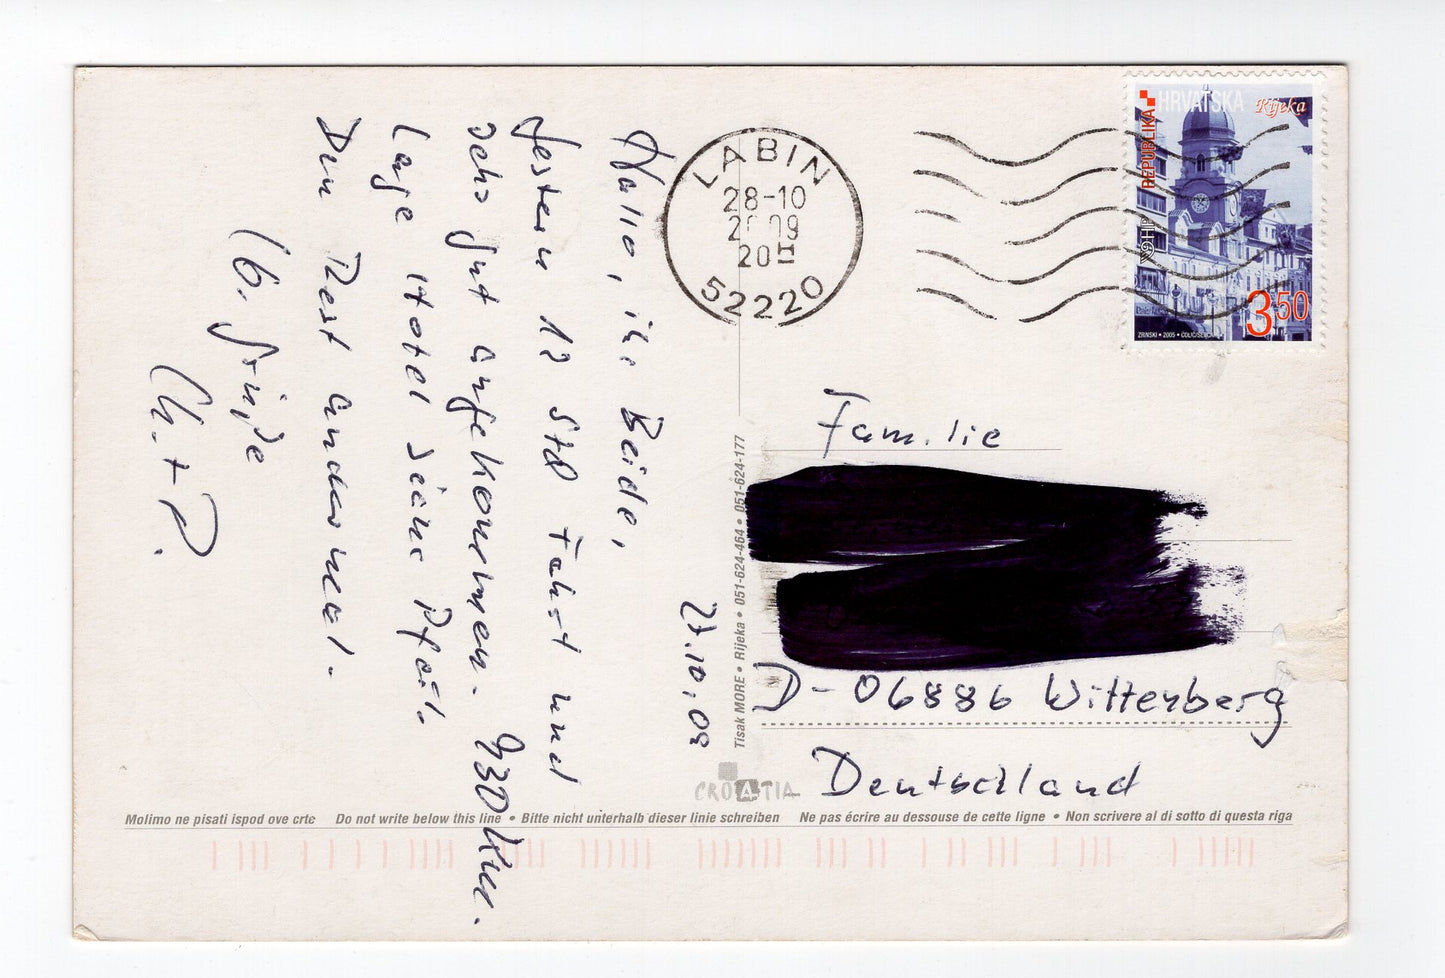 27.10.09
Hallo, ihr Beide,
gestern 12 Std Fahrt und
sehr gut angekommen. 930 km.
Lage Hotel siehe Pfeil.
Den Rest andermal.
lb. Grüße
Ch. + P.
LABIN
28-10
20H
52220
REPUBLIKA HRVATSKA
Rijeka
HP
3 50
ZRINSKI • 2005 •
Familie
D-06886 Wittenberg
Deutschland
Tisak MORE • Rijeka • 051-624-464 • 051-624-177
CROATIA
Molimo ne pisati ispod ove crte Do not write below this line • Bitte nicht unterhalb dieser linie schreiben Ne pas écrire au dessouse de cette ligne • Non scrivere al di sotto di questa riga